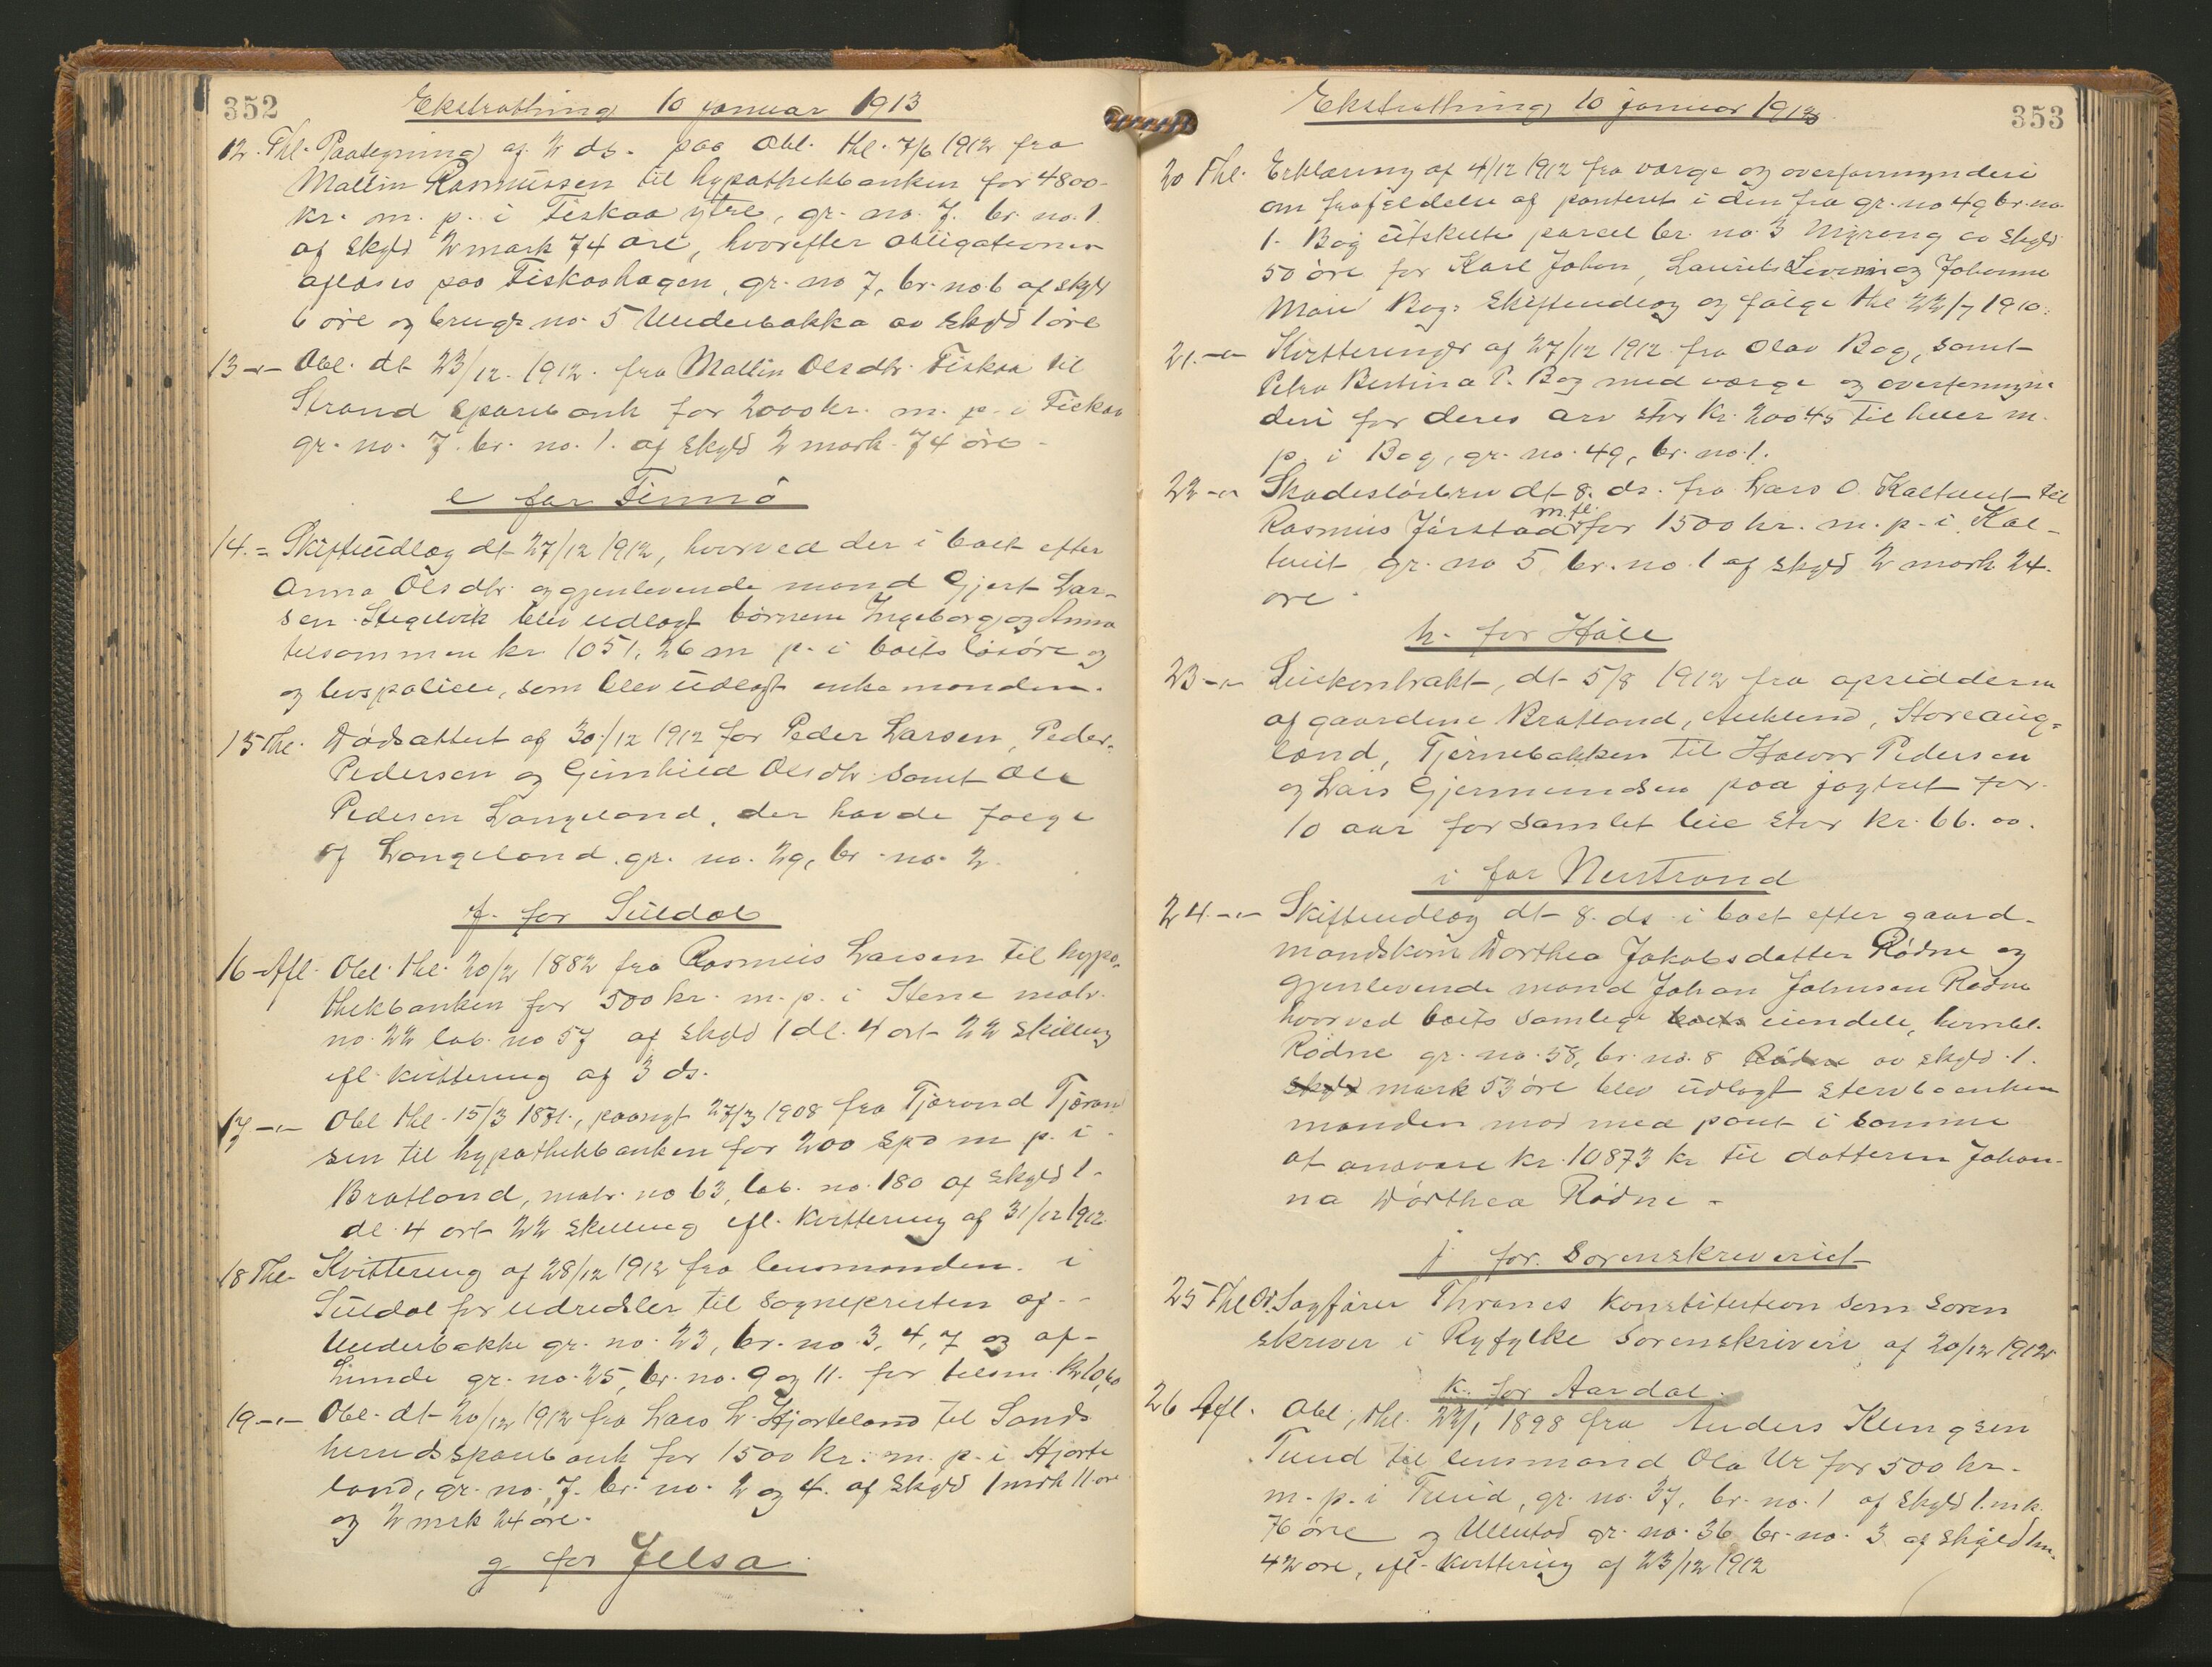 352
Ekstrathing 10 januar 1913
12. Thl. Paategning af 2 ds. paa obl. thl. 7/6 1912 fra
Mallin Rasmussen til hypothekbanken for 4800-
kr. m. p. i Fiskaa ytre, gr. no. 7. br. no. 1.
af skyld 2 mark 74 øre, hvorefter obligationen
aflæses paa Fiskaahagen, gr. no 7, br. no 6 af skyld
6 øre og brugs no. 5 Underbakka av skyld 1 øre
13 -"- Obl. dt 23/12. 1912. fra Mallin Olsdtr. Fiskaa til
Strand sparebank for 2000 kr. m. p. i Fiskaa
gr. no. 7. br. no. 1. af skyld 2 mark 74 øre -
e for Finnø
14. = Skifteudlæg dt 27/12 1912, hvorved der i boet efter
Anna Olsdtr. og gjenlevende mand Gjert Lar-
sen Stegelvik blev udlagt børnene Ingeborg og Anna
tilsammen kr. 1051,26 m p. i boets løsøre og
og livspolice, som blev udlagt enkemanden.
15 Thl. Dødsattest af 30/12 1912 for Peder Larsen, Peder
Pedersen og Gunhild Olsdtr samt Ole
Pedersen Langeland, der havde følge
af Langeland. gr. no. 29, br. no. 2.
f. for Suldal
16 Afl. Obl. thl. 20/2 1882 fra Rasmus Larsen til hypo-
thekbanken for 500 kr. m. p. i Stene matr.
no. 22 lab. no 57 af skyld 1 dl. 4 ort 22 skilling
ifl. kvittering af 3 ds.
17 -"- Obl thl. 15/3 1871., paategt 27/3 1908 fra Tjærand Tjæran
sen til hypothekbanken for 200 Spd m p. i
Bratland, matr. no 63, lab. no. 180 af skyld 1-
dl. 4 ort 22 skilling ifl. kvittering af 31/12 1912.
18 Thl. Kvittering af 28/12 1912 fra lensmanden i
Suldal for udredsler til sognepresten af -
Underbakke gr. no. 23, br. no. 3, 4, 7 og af -
Lunde gr. no. 25, br. no. 9 og 11. for tilsm.
19 -"- Obl. dt 20/12 1912 fra Lars L. Hjorteland til Sands
herredssparebank for 1500 kr. m. p. i Hjorte
land, gr. no. 7. br. no. 2 og 4. af skyld 1 mrk 11 øre
og 2 mrk 24 øre.
g for Jelsa.
353
Ekstrathing 10 januar 1913.
20 Thl. Erklæring af 4/12 1912 fra værge og overformynderi
om frafældelse af panteret i den fra gr. no 49 br. no.
1. Bog utskilte parcel br. no. 3 Myreng av skyld
50 øre for Karl Johan, Laurits Severin og Johanne
Marie Bogs skifteudlæg og følge thl 22/7 1910.
21. -"- Kvitteringer af 27/12 1912 fra Olav Bog, samt
Petra Bertina P. Bog med værge og overformyn-
deri for deres arv stor kr. 200 45 til hver m.
p. i Bog, gr. no. 49, br. no 1.
22 -"- Skadesløsbrev dt 8. ds. fra Lars O. Kaltveit til
Rasmus Jørstad m. fl. for 1500 kr. m. p. i Kal-
tveit gr. no 5, br. no. 1 af skyld 2 mark 24.
øre
h. for Hjelm
23 -"- Leiekontrakt, dt 5/8 1912 fra opsidderne
af gaardene Bratland, Aukland, Storeaug-
land, Tjernebakken til Halvor Pedersen
og Lars Gjermundsen paa jagtret for
10 aar for samlet leie stor kr. 66.00.
i for Nerstrand
24 -"- Skifteudlæg dt 8. ds i boet efter gaard-
mandskone Dorthea Jakobsdatter Rødne og
gjenlevende mand Johan Johnsen Rødne
hvorved boets samlige boets eiendele, herunder
Rødne gr. no. 58, br. no. 8 Rødne av skyld 1.
skyld mark 53 øre blev udlagt stervboenke
manden mod med pant i samme
at ansvare kr. 10873 kr til datteren Johan-
na Dorthea Rødne -
j for. Sorenskriveriet
25 Thl O.r. Sagfører Thranes konstitution som soren
skriver i Ryfylke Sorenskriveri, af 20/12 1912
k. for Aardal.
26 Afl. Obl, thl. 22/1 1898 fra Anders Klungsen
Tuud til lensmand Ola Ur for 500 kr.
m. p. i Tuud, gr. no. 37, br. no. 1 af skyld 1 mk.
76 øre og Ullestad gr. no. 36 br. no. 3 af skyld 1 m.
42 øre, ifl. kvittering af 23/12 1912